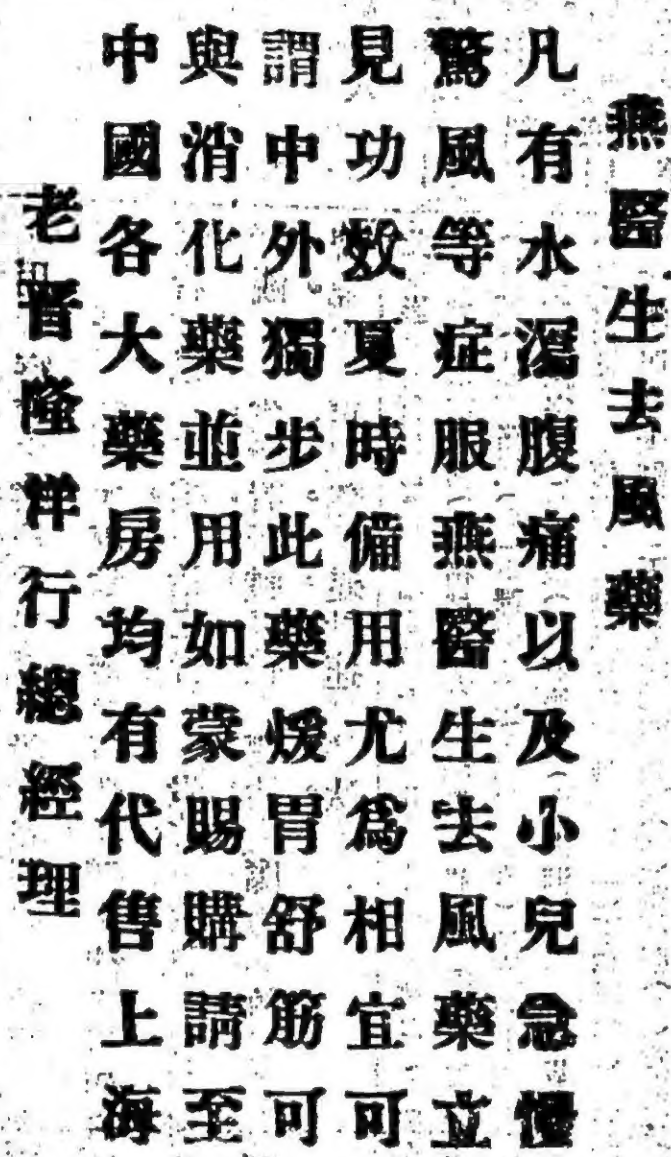 燕醫生去風藥
凡有水瀉腹痛以及小兒急慢
驚風等症服燕醫生去風藥立
見功效夏時備用尤爲相宜可
謂中外獨步此藥煖胃舒筋可
與消化藥並用如蒙賜購請至
中國各大藥房均有代售上海
老晉隆洋行總經理